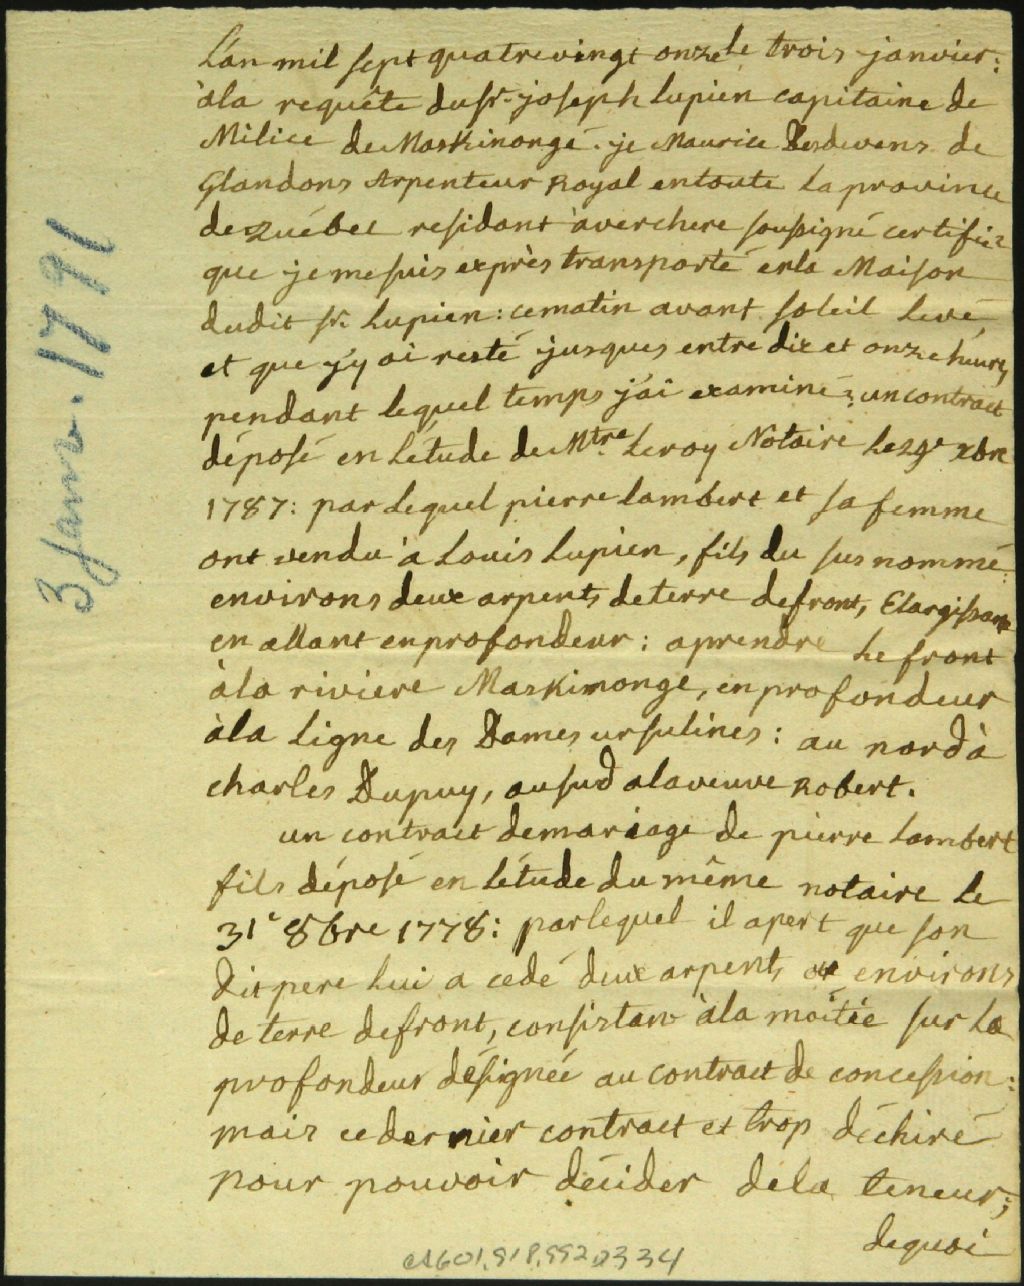 L'an mil sept quatrevingt onze le trois janvier:
à la requête du Sr. joseph Lupien capitaine de
Milice de Maskinongé. je Maurice Desdevens de
Glandons Arpenteur Royal en toute la province
de Québec residant à verchere soussigné certifie
que je me suis exprès transporté en la Maison
dudit Sr. Lupien: ce matin avant soleil levé,
et que j'y ai resté jusques entre dix et onze heures,
pendant lequel temps j'ai examiné: un contract
déposé en L'étude de Mtre. Leroy Notaire Le 29e xbre
1787: par lequel pierre Lambert et sa femme
ont vendu à Louis Lupien, fils du sus nommé
environs deux arpents de terre de front, Elargissant
en allant en profondeur: a prendre Le front
à la riviere Maskinonge, en profondeur
à la Ligne des Dames ursulines: au nord à
charles Dupuy, au sud a la veuve Robert.
un contract de mariage de pierre Lambert
fils déposé en L'étude du même notaire Le
31e 8bre 1778: par lequel il apert que son
dit pere Lui a cedé deux arpents environs
de terre de front, consistant à la moitié sur La
profondeur désignée au contract de concession:
mais ce dernier contract et trop déchiré
pour pouvoir décider de la teneur;
de quoi
3 Janv. 1791
CA601,S1P,S92,D334